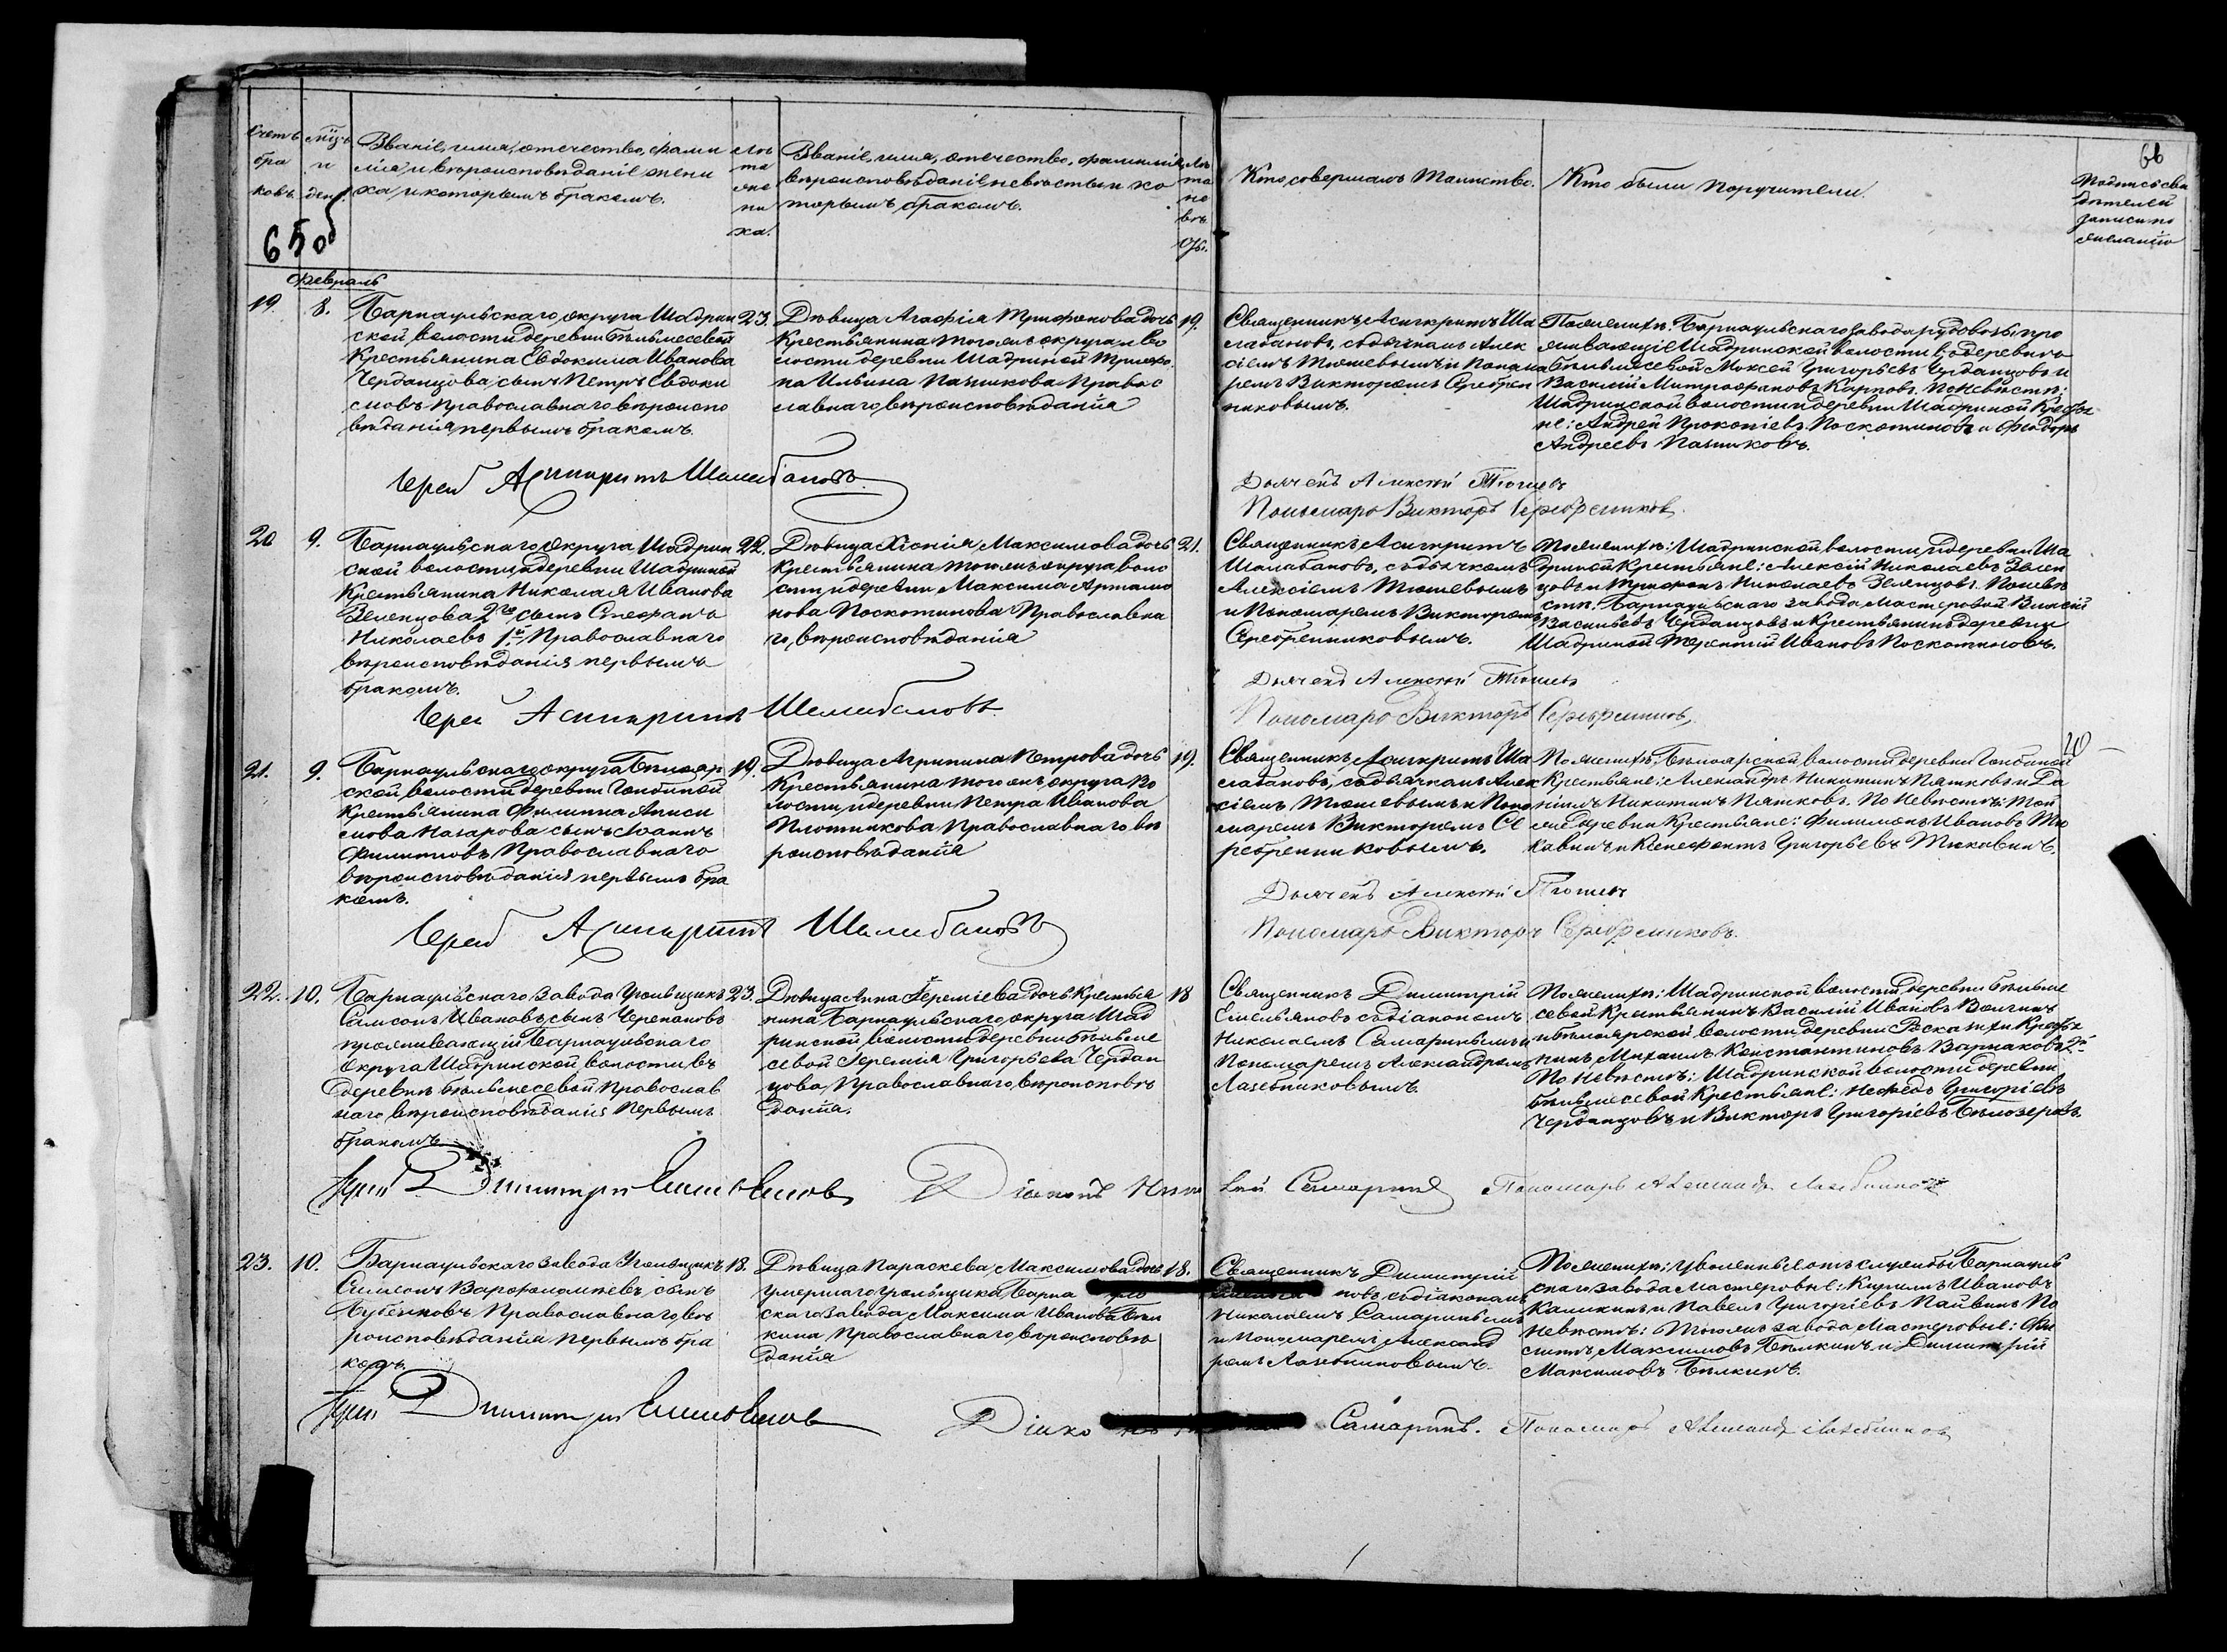 Счетъ браковъ.
Мѣсъ и день.
Званіе, имя, отечество, фами
лія и вѣроисповѣданіе жени
ха, и которымъ бракомъ.
Лѣта жениха.
Званіе, имя, отечество, фамилія,
вѣроисповѣданіе невѣсты и ко
торымъ бракомъ.
Лѣта невѣсты.
Кто совершалъ Таинство.
Кто были поручители.
66
Подпись сви
дѣтелей
записи по
желанію
650
Февраль
19.
8.
Барнаульскаго округа Шадрин
ской волости деревни Бѣльмесевой
Крестьянина Евдокима Иванова
Черданцова сынъ Петръ Евдоки
мовъ Православнаго вѣроиспо
вѣданія, первымъ бракомъ.
23.
Дѣвица Агафія Трифонова дочь
Крестьянина тогожъ округа и во
лости деревни Шадриной Трифо
на Ильина Пашкова Правос
лавнаго вѣроисповѣданія
19.
Священникъ Асигкритъ Ша
лабановъ, съ дьячкомъ Алек
сіемъ Тюшевымъ и Понама
ремъ Викторомъ Серебрен
никовымъ.
По женихѣ: Барнаульскаго завода рудовозы, про
живающіе Шадринской волости въ деревнѣ
Бѣльмесевой Моисей Григорьевъ Черданцовъ и
Василій Митрофановъ Карповъ. По невѣстѣ:
Шадринской волости и деревни Шадриной Кресть
не: Андрей Прокопіевъ Поскотиновъ и Федоръ
Андреевъ Пашковъ.
Іерей Асигкритъ Шалабановъ
Дьячекъ Алексѣй Тюшевъ
Пономарь Викторъ Серебренниковъ.
20
9.
Барнаульскаго округа Шадрин
ской волости и деревни Шадриной
Крестьянина Николая Иванова
Зеленцова 2го сынъ Стефанъ
Николаевъ 1й Православнаго
вѣроисповѣданія первымъ
бракомъ.
22.
Дѣвица Хіонія Максимова дочь
Крестьянина тогожъ округа воло
сти и деревни Максима Артамо
нова Поскотинова Православна
го, вѣроисповѣданія
21.
Священникъ Асигкритъ
Шалабановъ, съ дьячкомъ
Алексіемъ Тюшевымъ
и Пономаремъ Викторомъ
Серебренниковымъ.
По женихѣ: Шадринской волости, и деревни Ша
дриной Крестьяне: Алексій Николаевъ Зелен
цовъ и Трифонъ Николаевъ Зеленцовъ. По невѣ
стѣ: Барнаульскаго завода Мастеровой
Васильевъ Черданцовъ и Крестьянинъ деревни
Шадриной Терентій Ивановъ Поскотиновъ.
Іерей Асигкритъ Шалабановъ
Дьячекъ Алексѣй Тюшевъ
Пономарь Викторъ Серебренниковъ.
21.
9.
Барнаульскаго округа Бѣлояр
ской, волости деревни Гоньбиной
Крестьянина Филиппа Аниси
мова Назарова сынъ Іоаннъ
Филипповъ Православнаго
вѣроисповѣданія первымъ бра
комъ.
19.
Дѣвица Агрипина Петрова дочь
Крестьянина тогожъ округа Во
лости, и деревни Петра Иванова
Плотникова Православнаго вѣ
роисповѣданія
19.
Священникъ Асигкритъ Ша
лабановъ, съ дьячкомъ Алек
сіемъ Тюшевымъ и Поно
маремъ Викторомъ Се
ребренниковымъ.
По женихѣ, Бѣлоярской, волости деревни Гоньбиной
Крестьяне: Александръ Никитинъ Пятковъ и Да
ніилъ Никитинъ Пятковъ. По Невѣстѣ: Той
же деревни Крестьяне: Филимонъ Ивановъ Тю
кавинъ и Ксенофонтъ Григорьевъ Тюкавинъ.
20 —
Іерей Асигкритъ Шалабановъ
Дьячекъ Алексѣй Тюшевъ
Пономарь Викторъ Серебренниковъ.
22.
10.
Барнаульскаго завода Урольщикъ
Самсонъ Ивановъ сынъ Черепановъ
проживающій Барнаульскаго
округа Шадринской, волости въ
деревнѣ Бѣльмесевой Православ
наго вѣроисповѣданія Первымъ
бракомъ
23.
Дѣвица Анна Іереміева дочь Крестья
нина Барнаульскаго, округа Шад
ринской, волости деревни Бѣльме
севой Іеремія Григорьева Чердан
цова, Православнаго, вѣроисповѣ
данія.
18
Священникъ Димитрій
Емельяновъ съ діакономъ
Николаемъ Самаринымъ и
Пономаремъ Александромъ
Лазебниковымъ.
По женихѣ: Шадринской волости деревни Бѣльме
севой Крестьянинъ Василій Ивановъ Волгинъ
и Бѣлоярской волости деревни Расказихи Кресть
нинъ Михаилъ Константиновъ Варнаковъ 2й
По Невѣстѣ: Шадринской волости деревни
Бѣльмесевой Крестьяне: Нефедъ Григоріевъ
Черданцовъ и Викторъ Григоріевъ Бѣлозеровъ.
Іерей Димитрій Емельяновъ
Діаконъ Николай Самаринъ
Пономарь Александръ Лазебниковъ
23.
10.
Барнаульскаго завода Урольщикъ
Симеонъ Варфоломѣевъ, сынъ
Бубенковъ Православнаго, вѣ
роисповѣданія Первымъ бра
комъ.
18.
Дѣвица Параскева Максимова дочь
умершаго урольщика Барнауль
скаго завода Максима Иванова Бѣл
кина, Православнаго, вѣроисповѣ
данія
18.
Священникъ Димитрій
Емельяновъ съ діакономъ
Николаемъ Самаринымъ
и Пономаремъ Александ
ромъ Лазебниковымъ.
По женихѣ: уволенные отъ службы Барнауль
скаго завода Мастеровые: Кирилъ Ивановъ
Каликинъ и Павелъ Григоріевъ Пайвинъ По
Невѣстѣ: Тогожъ завода Мастеровые: Фи
липъ, Максимовъ Бѣлкинъ и Димитрій
Максимовъ Бѣлкинъ.
Іерей Димитрій Емельяновъ
Діаконъ Самаринъ.
Пономарь Александръ Лазебниковъ